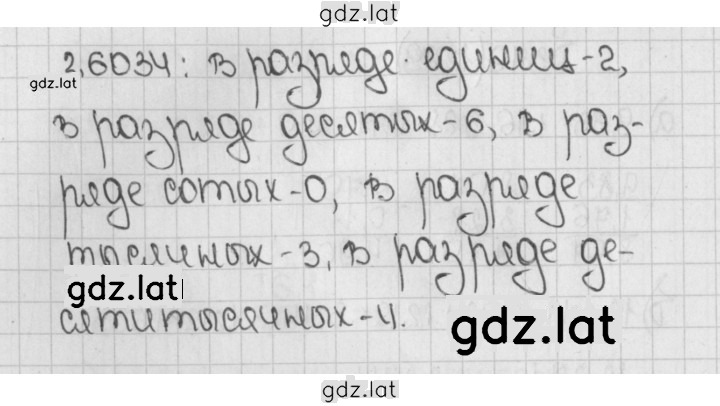 gdz.lat
2,6034: в разряде единиц-2,
gdz.lat
в разряде десятых-6, в раз-
ряде сотых-0, в разряде
тысячных-3, в разряде де-
gdz.lat
сятитысячных-4.
gdz.lat
gdz.lat